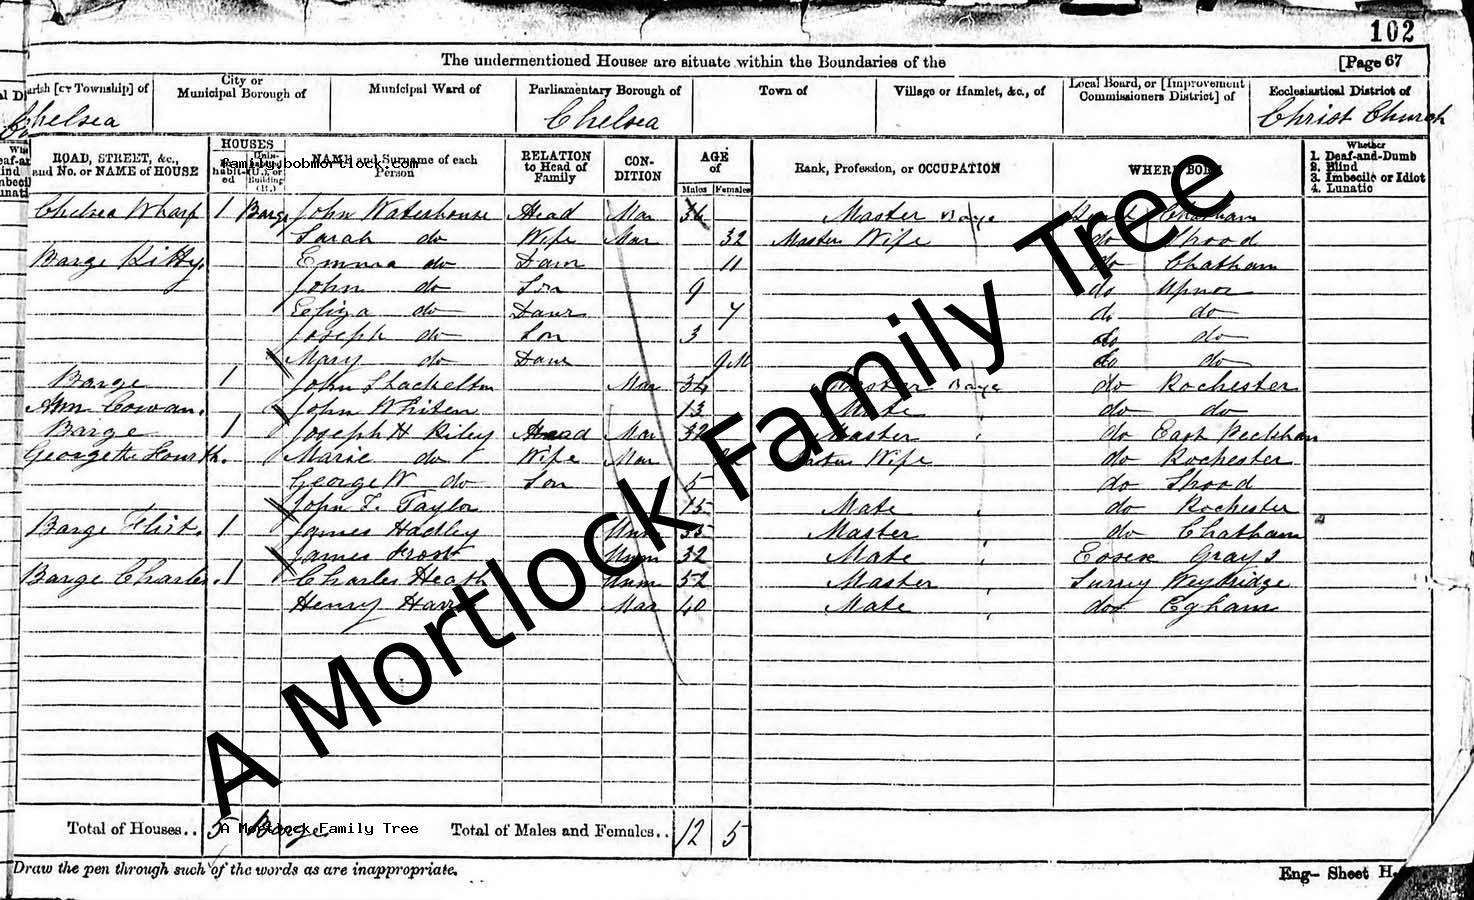 102
The undermentioned Houses are situate within the Boundaries of the [Page 67
Parish [or Township] of City or Municipal Borough of Municipal Ward of Parliamentary Borough of Town of Village or Hamlet, &c., of Local Board, or [Improvement Commissioners District] of Ecclesiastical District of
Chelsea Chelsea Christ Church
ROAD, STREET, &c., and No. or NAME of HOUSE HOUSES NAME and Surname of each Person RELATION to Head of Family CON-DITION AGE of Males Females Rank, Profession, or OCCUPATION WHERE BORN Whether 1. Deaf-and-Dumb 2. Blind 3. Imbecile or Idiot 4. Lunatic
family.bobmortlock.com
Chelsea Wharf 1 Barge John Waterhouse Head Mar 34 Master Barge Chatham
Sarah do Wife Mar 32 Masters Wife do Strood
Barge Kitty. Emma do Daur 11 do Chatham
John do Son 9 do Upnor
Eliza do Daur 7 do do
Joseph do Son 3 do do
Mary do Daur 9M do do
Barge 1 John Mar 34 Master Barge do Rochester
Ann Cowan. John Whiten 13 Mate do do
Barge 1 Joseph H Riley Head Mar 32 Master do East Peckham
George the Fourth. Marie do Wife Mar Wife do Rochester
George W do Son 5 do Strood
John T. Taylor 15 Mate do Rochester
Barge Flirt. 1 James Hadley Unm 33 Master do Chatham
James Frost Unm 32 Mate Essex Grays
Barge Charles. 1 Charles Heath Unm 52 Master Surrey Weybridge
Henry Mar 40 Mate do Egham
A Mortlock Family Tree
Total of Houses.. 5 Barges Total of Males and Females.. 12 5
A Mortlock Family Tree
Draw the pen through such of the words as are inappropriate. Eng— Sheet H.